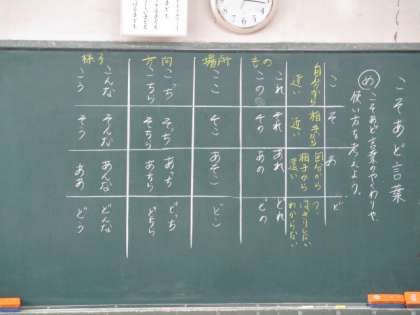 こそあど言葉
め こそあど言葉のやくわりや、
使い方を考えよう。
こ
そ
あ
ど
自分から
近い
相手から
近い
自分から
相手から
遠い
？
はっきりしない
わからない
もの
これ
この
それ
その
あれ
あの
どれ
どの
場所
ここ
そこ
あそこ
どこ
方向
こっち
こちら
そっち
そちら
あっち
あちら
どっち
どちら
様子
こんな
こう
そんな
そう
あんな
ああ
どんな
どう